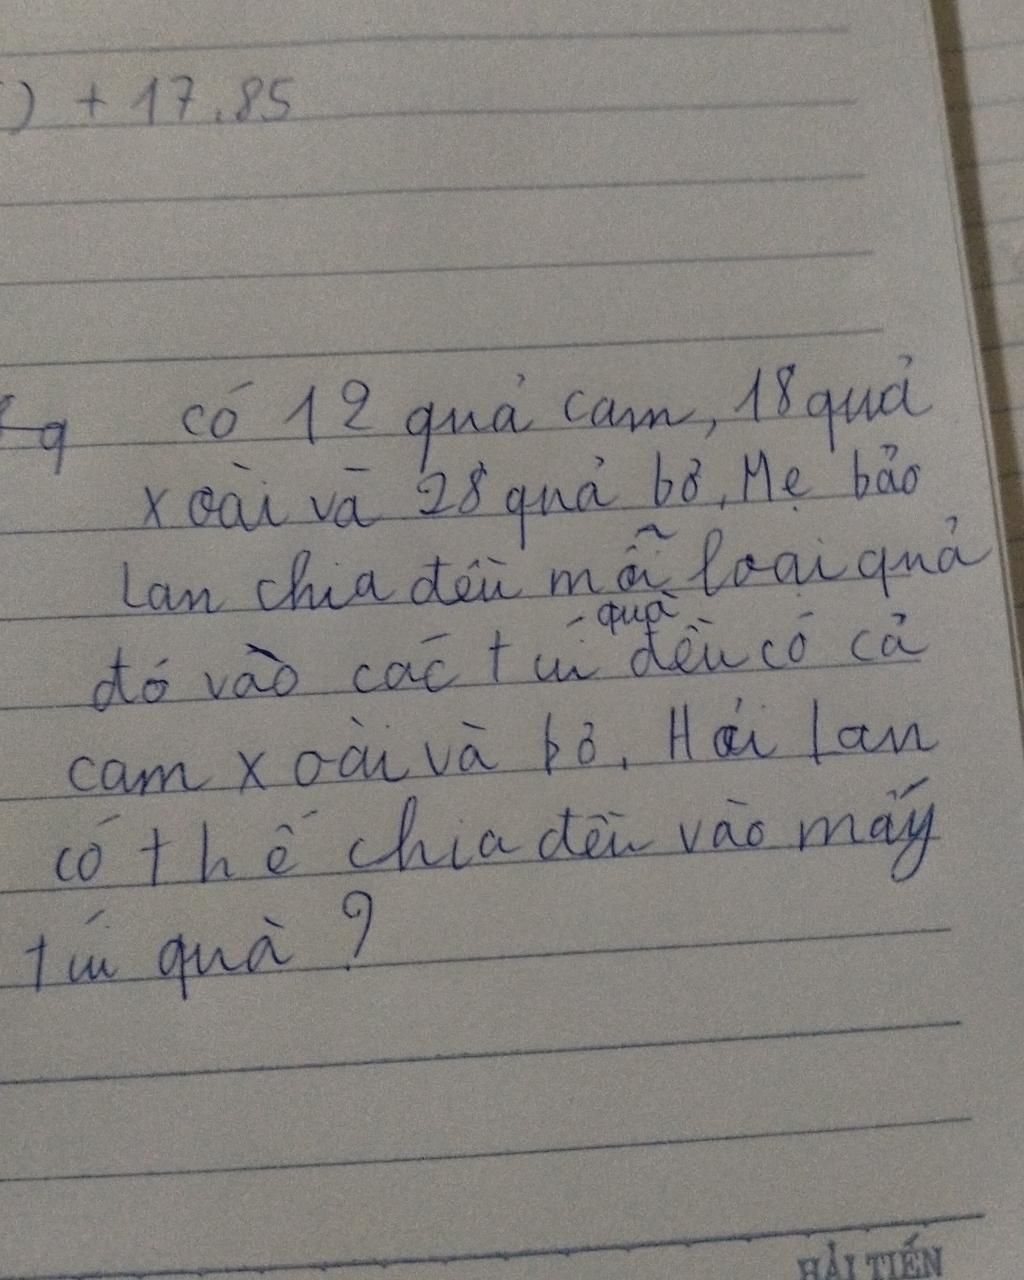 ) + 17.85
9 có 12 quả cam, 18 quả
xoài và 28 quả bơ. Mẹ bảo
Lan chia đều mỗi loại quả
đó vào các túi quà đều có cả
cam xoài và bơ. Hỏi Lan
có thể chia đều vào mấy
túi quà ?
HẢI TIẾN